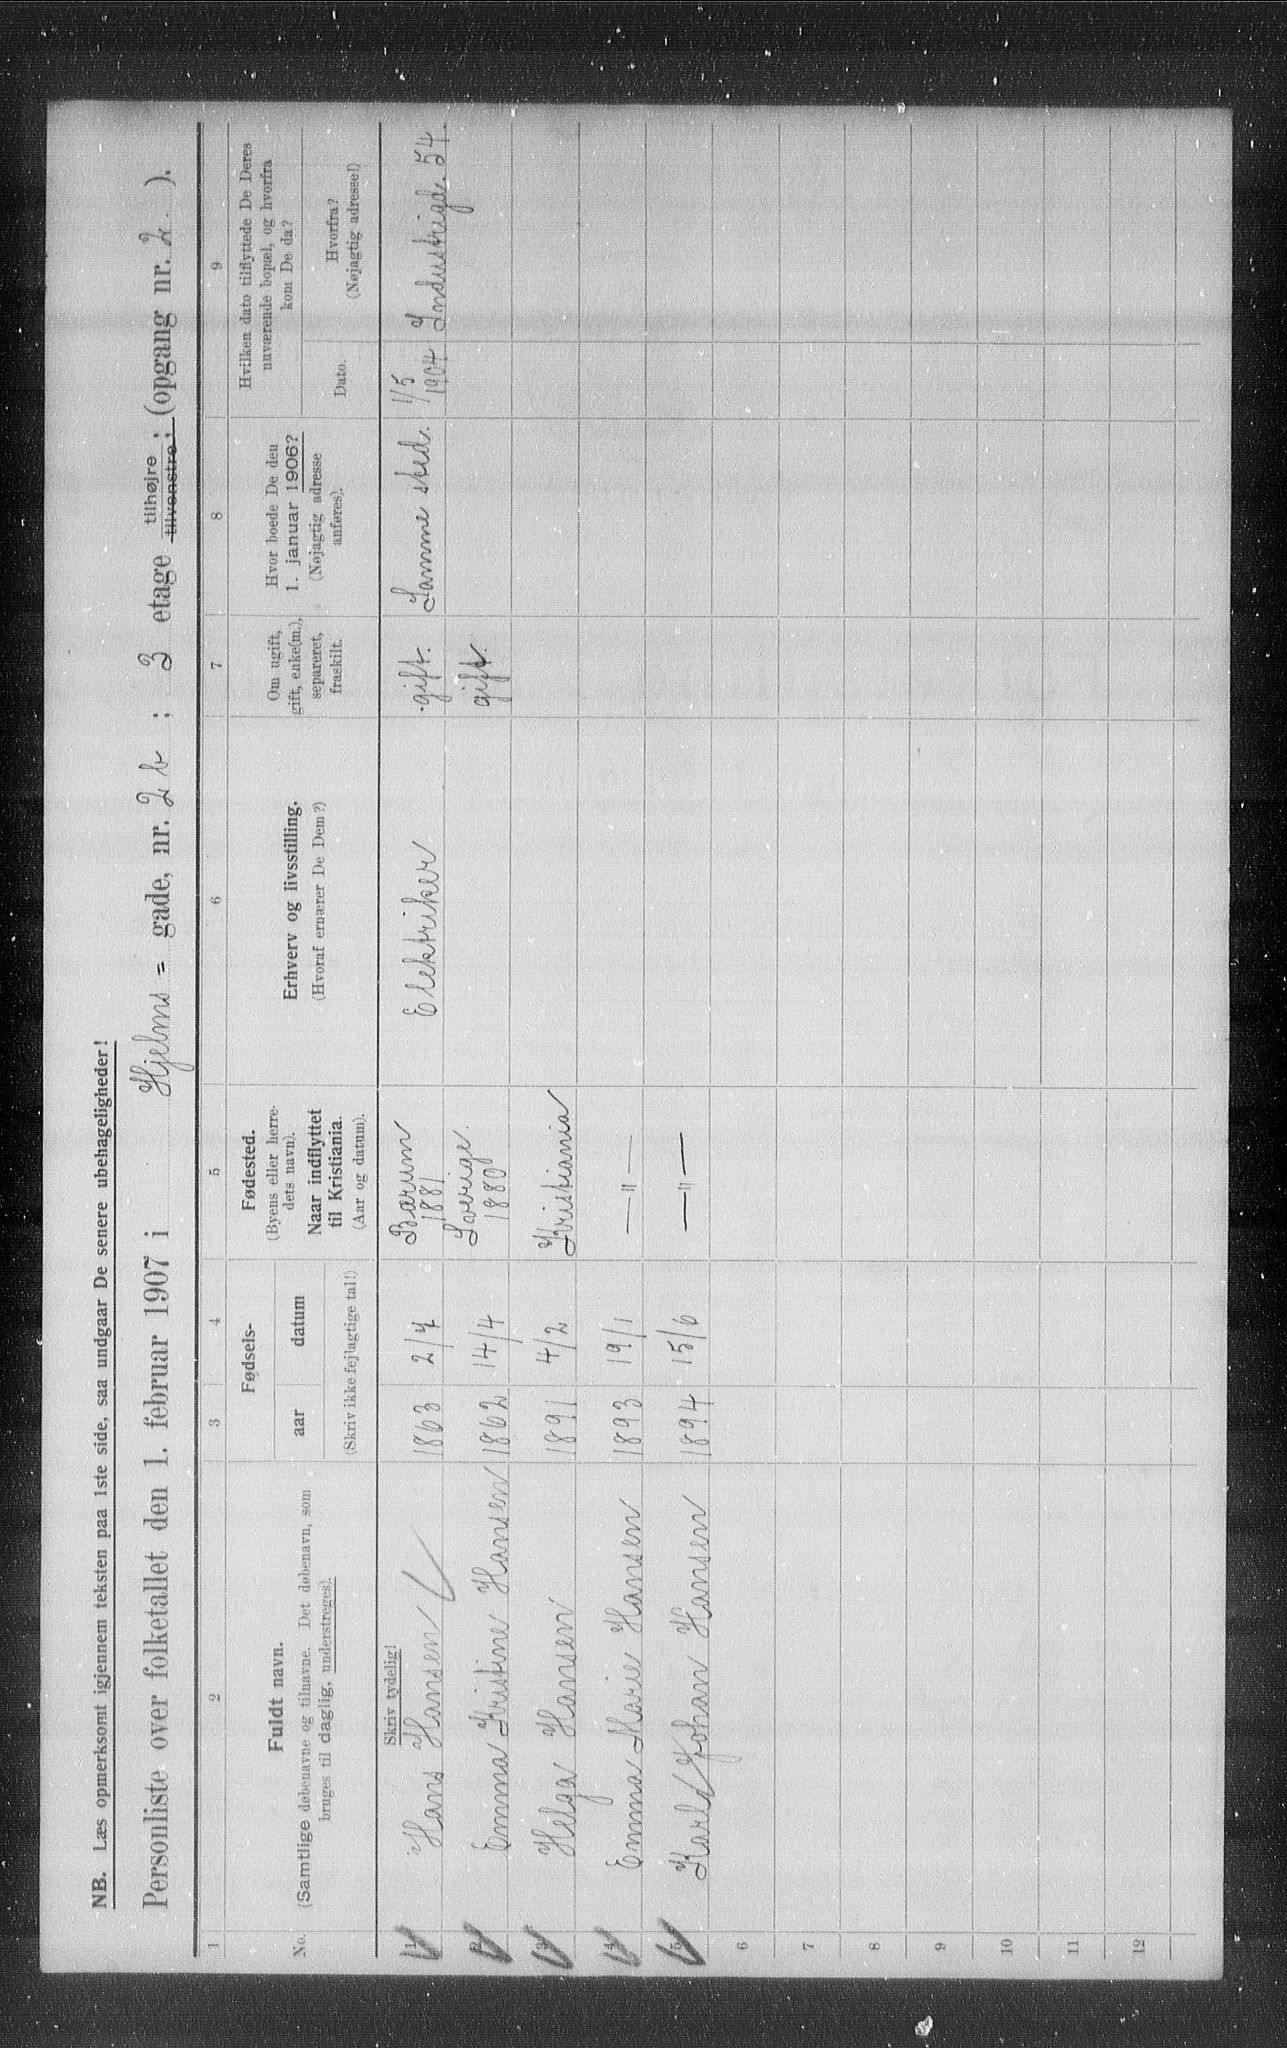 NB. Læs opmerksomt igjennem teksten paa 1ste side, saa undgaar De senere ubehageligheder!
Personliste over folketallet den 1. februar 1907 i Hjelms = gade, nr. 2 b ; 3 etage tilhøjre ; tilvenstre ; (opgang nr. 2 ).
1 2 3 4 5 6 7 8 9
No.
Fuldt navn.
(Samtlige døbenavne og tilnavne. Det døbenavn, som
bruges til daglig, understreges).
Fødsels-
aar datum
(Skriv ikke fejlagtige tal!)
Fødested.
(Byens eller herre-
dets navn).
Naar indflyttet
til Kristiania.
(Aar og datum).
Erhverv og livsstilling.
(Hvoraf ernærer De Dem?)
Om ugift,
gift, enke(m.),
separeret,
fraskilt.
Hvor boede De den
1. januar 1906?
(Nøjagtig adresse
anføres).
Hvilken dato tilflyttede De Deres
nuværende bopæl, og hvorfra
kom De da?
Dato.
Hvorfra?
(Nøjagtig adresse!)
Skriv tydelig!
1 Hans Hansen 1863 2/4 Bærum 1881 Elektriker gift. Samme sted. 1/5 1904 Industrigd. 54.
2 Emma Kristine Hansen 1862 14/4 Sverige. 1880 gift.
3 Helga Hansen 1891 4/2 Kristiania
4 Emma Marie Hansen 1893 19/1 —"—
5 Karl Johan Hansen 1894 15/6 —"—
6
7
8
9
10
11
12